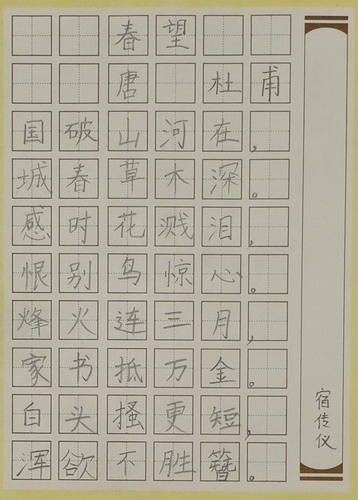 春望
唐 杜甫
国破山河在,
城春草木深。
感时花溅泪,
恨别鸟惊心。
烽火连三月,
家书抵万金。
白头搔更短,
浑欲不胜簪。
宿传仪